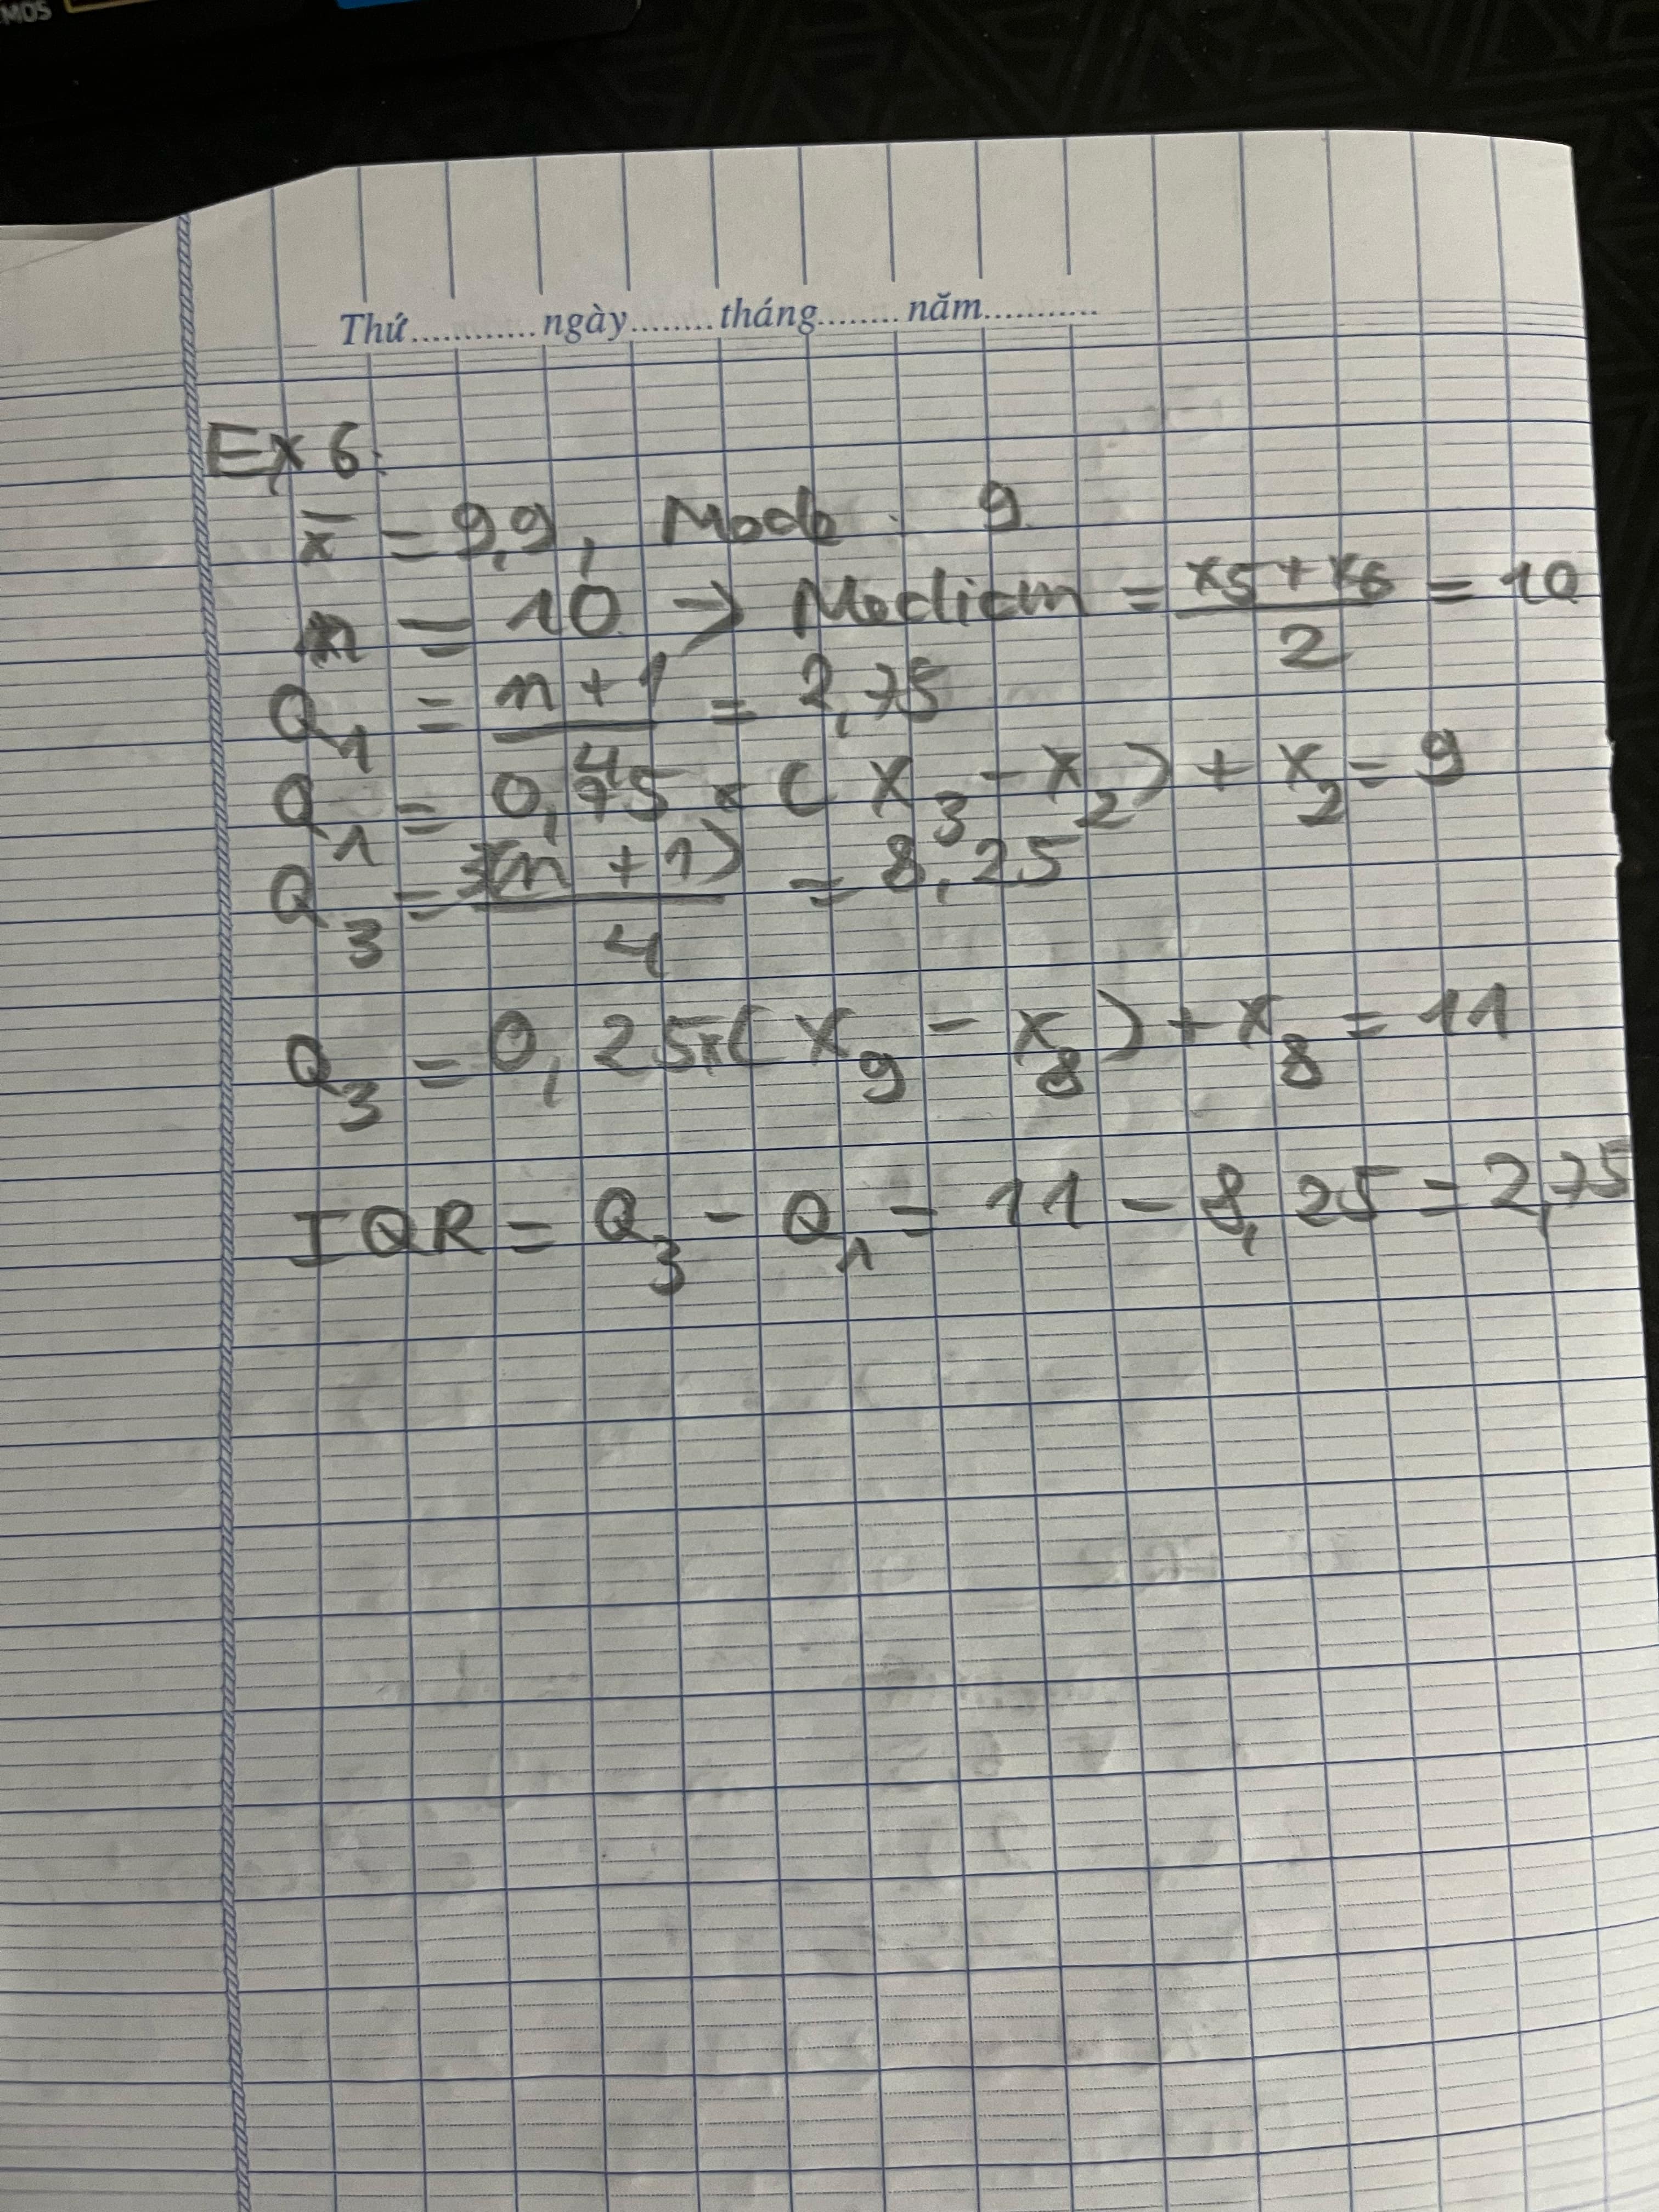 MOS
Thứ............ngày........tháng........năm...........
Ex 6:
x̄ = 9,9, Mode : 9
n = 10 → Median = (x5 + x6)/2 = 10
Q1 = (n + 1)/4 = 2,75
Q1 = 0,75 × (x3 - x2) + x2 = 9
Q3 = 3(n + 1)/4 = 8,25
Q3 = 0,25×(x9 - x8) + x8 = 11
IQR = Q3 - Q1 = 11 - 8,25 = 2,75